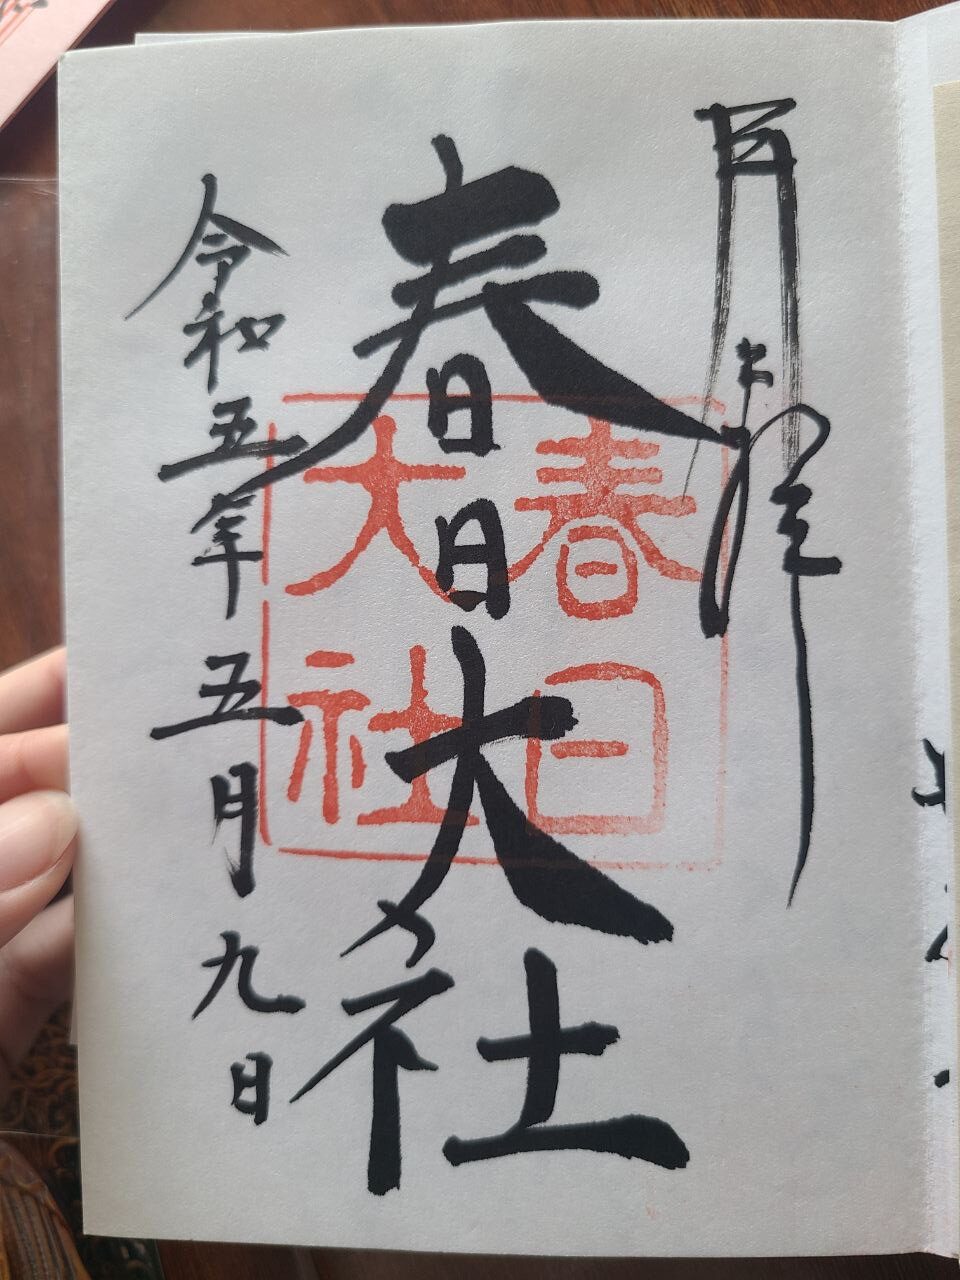 春日大社
令和五年五月九日
春日
大社